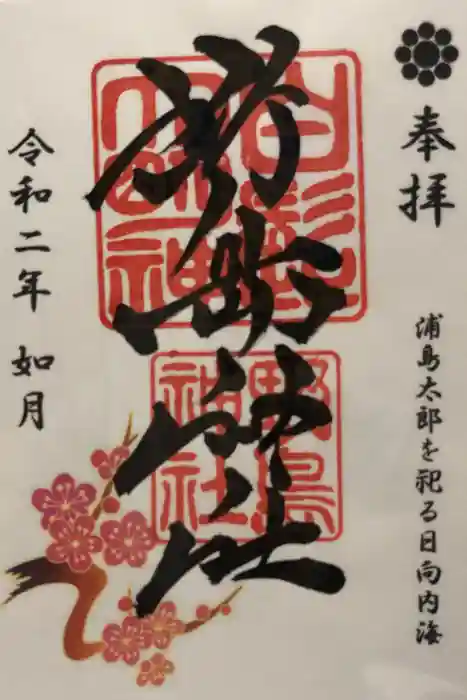 奉拝
浦島太郎を祀る日向内海
野島神社
白髭
大明神
野島
神社
令和二年 如月